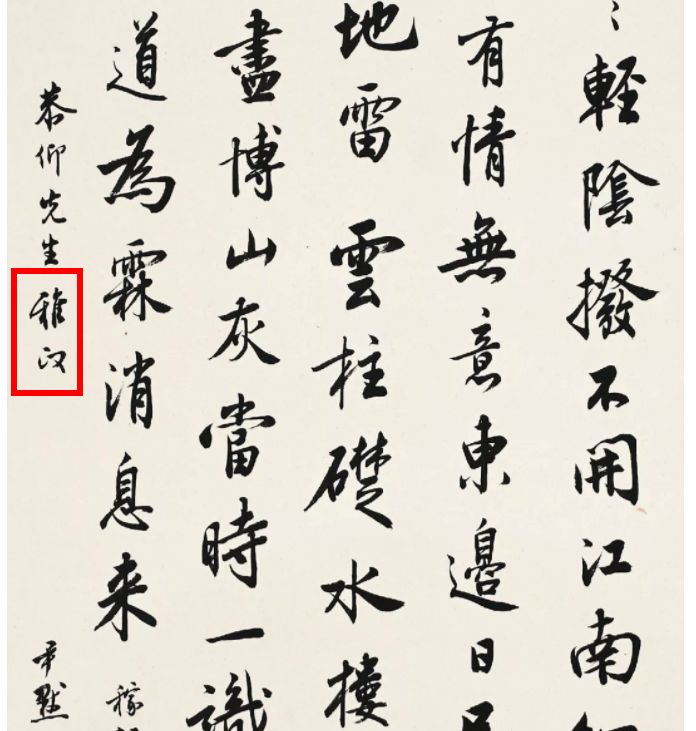 輕陰撥不開江南
有情無意東邊日
地雷雲柱礎水樓
盡博山灰當時一識
道為霖消息来 稼
恭仰先生雅政
尹默